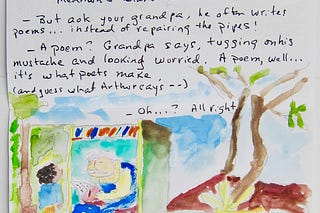 - But ask your grandpa, he often writes
poems... instead of repairing the pipes!
- A poem? Grandpa says, tugging on his
mustache and looking worried. A poem, well...
it's what poets make,
(and guess what Arthur says --)
- Oh...? All right